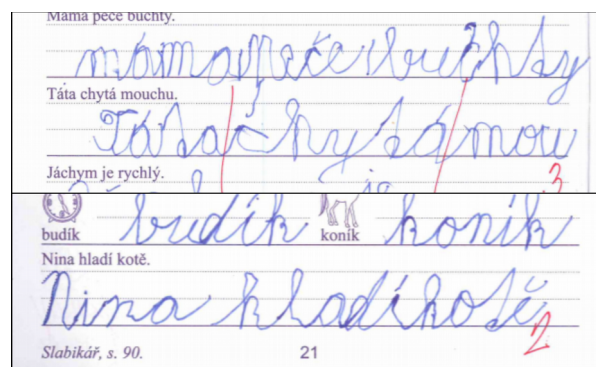 Máma peče buchty.
máma peče buchty
Táta chytá mouchu.
Táta chytá mou
Jáchym je rychlý.
je
3
budík budík koník koník
Nina hladí kotě.
Nina hladí kotě
2
Slabikář, s. 90. 21